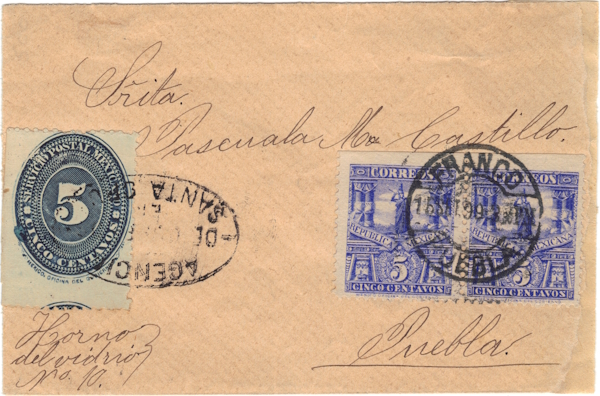 Srita.
Pascuala Ma Castillo.
SERVICIO POSTAL MEXICANO
5
CINCO CENTAVOS
AGENCIA
DE
SANTA
CORREOS
REPUBLICA MEXICANA
5
CINCO CENTAVOS
CORREOS
MEXICANA
5
CINCO CENTAVOS
FRANCO
99
Puebla.
Horno
del vidrio
No. 10.